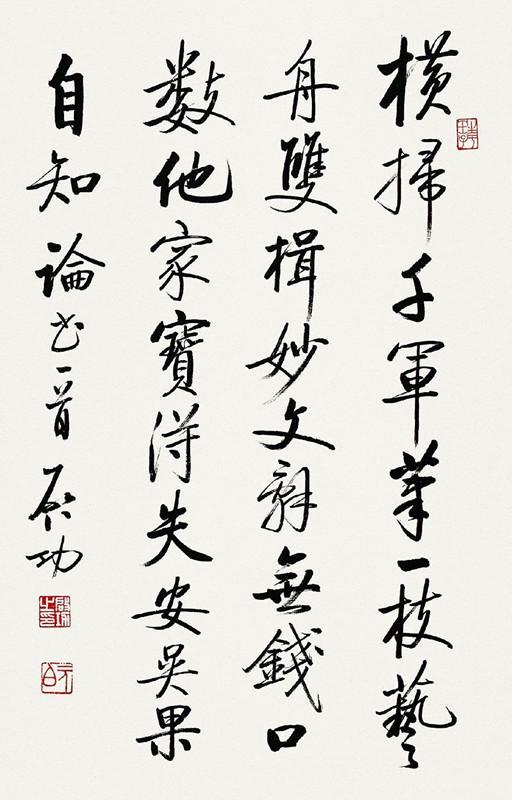 橫掃千軍筆一枝藝
舟雙楫妙文辭無錢口
數他家寶得失安吳果
自知 論书一首 启功
啟功之印
元白